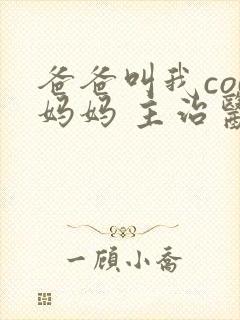 爸爸叫我co
妈妈 主治
一顾小乔